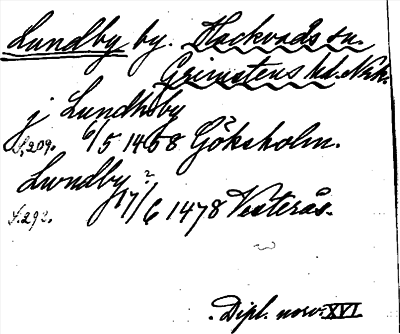 Lundby by. Hackvads sn.
Grimstens hd. Nrk.
j Lundhby
S. 209. 6/5 1458 Göksholm.
Lwndby ?
S. 292. 17/6 1478 Vesterås.
Dipl. norv. XVI.